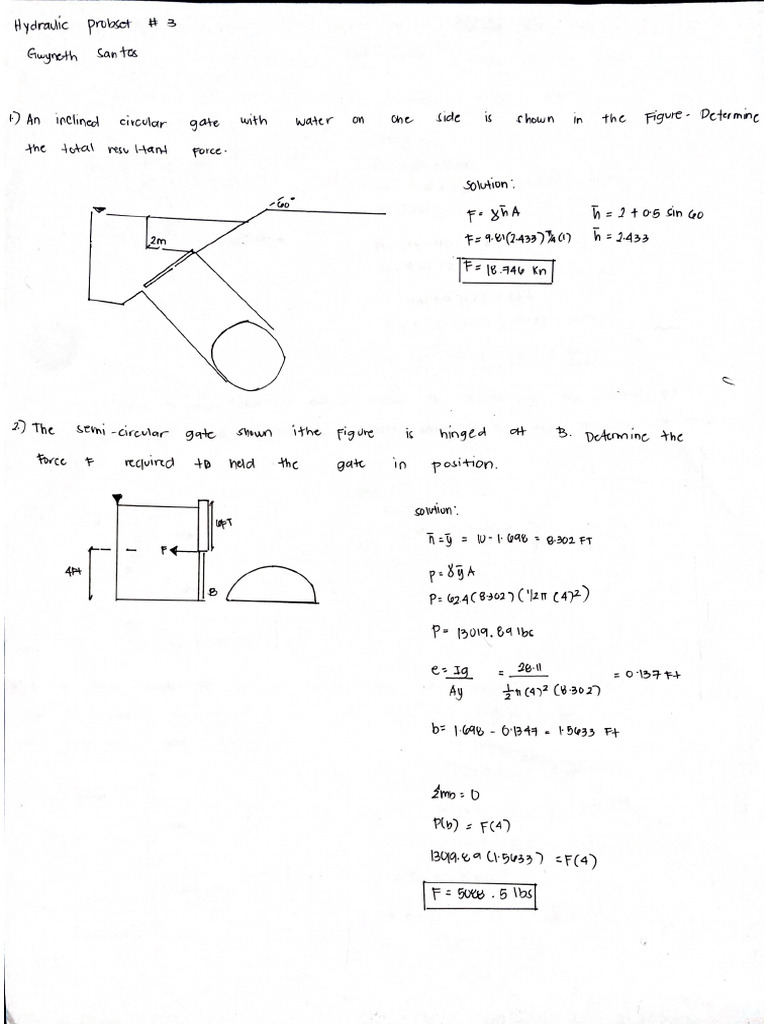 Hydraulic probset # 3
Gwyneth Santos
1.) An inclined circular gate with water on one side is shown in the Figure. Determine
the total resultant force.
60°
2m
solution:
F = γh̄A
h̄ = 2 + 0.5 sin 60
F = 9.81(2.433) π/4 (1)
h̄ = 2.433
F = 18.746 Kn
2.) The semi-circular gate shown ithe Figure is hinged at B. Determine the
Force F required to held the gate in position.
F
4Ft
B
solution:
h̄ = ȳ = 10 - 1.698 = 8.302 FT
p = γȳA
P = 62.4(8.302)(1/2π(4)²)
P = 13019.89 lbs
e = Ig/Ay = 28.11/½π(4)²(8.302) = 0.137 Ft
b = 1.698 - 0.1347 = 1.5633 Ft
Σmb = 0
P(b) = F(4)
13019.89(1.5633) = F(4)
F = 5088.5 lbs